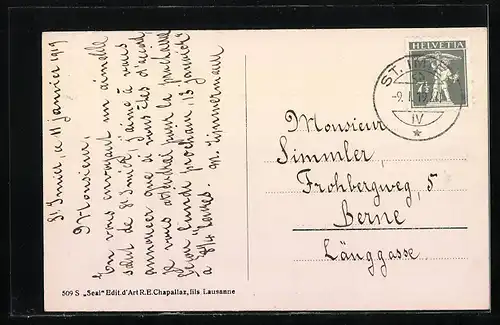 St Imier, ce 11 janvier 1919
Monsieur,
En vous envoyant un aimable
salut de St Imier, j'aime à vous
annoncer que si vous êtes d'accord
je vous attendrai pour la prochaine
leçon lundi prochain, 13 janvier
à 8¼ heures. M. Zimmermann
HELVETIA
7½
ST. IMIER
IV
Monsieur
Simmler,
Frohbergweg, 5
Berne
Länggasse.
509 S „Seal" Edit. d'Art R. E. Chapallaz, fils Lausanne